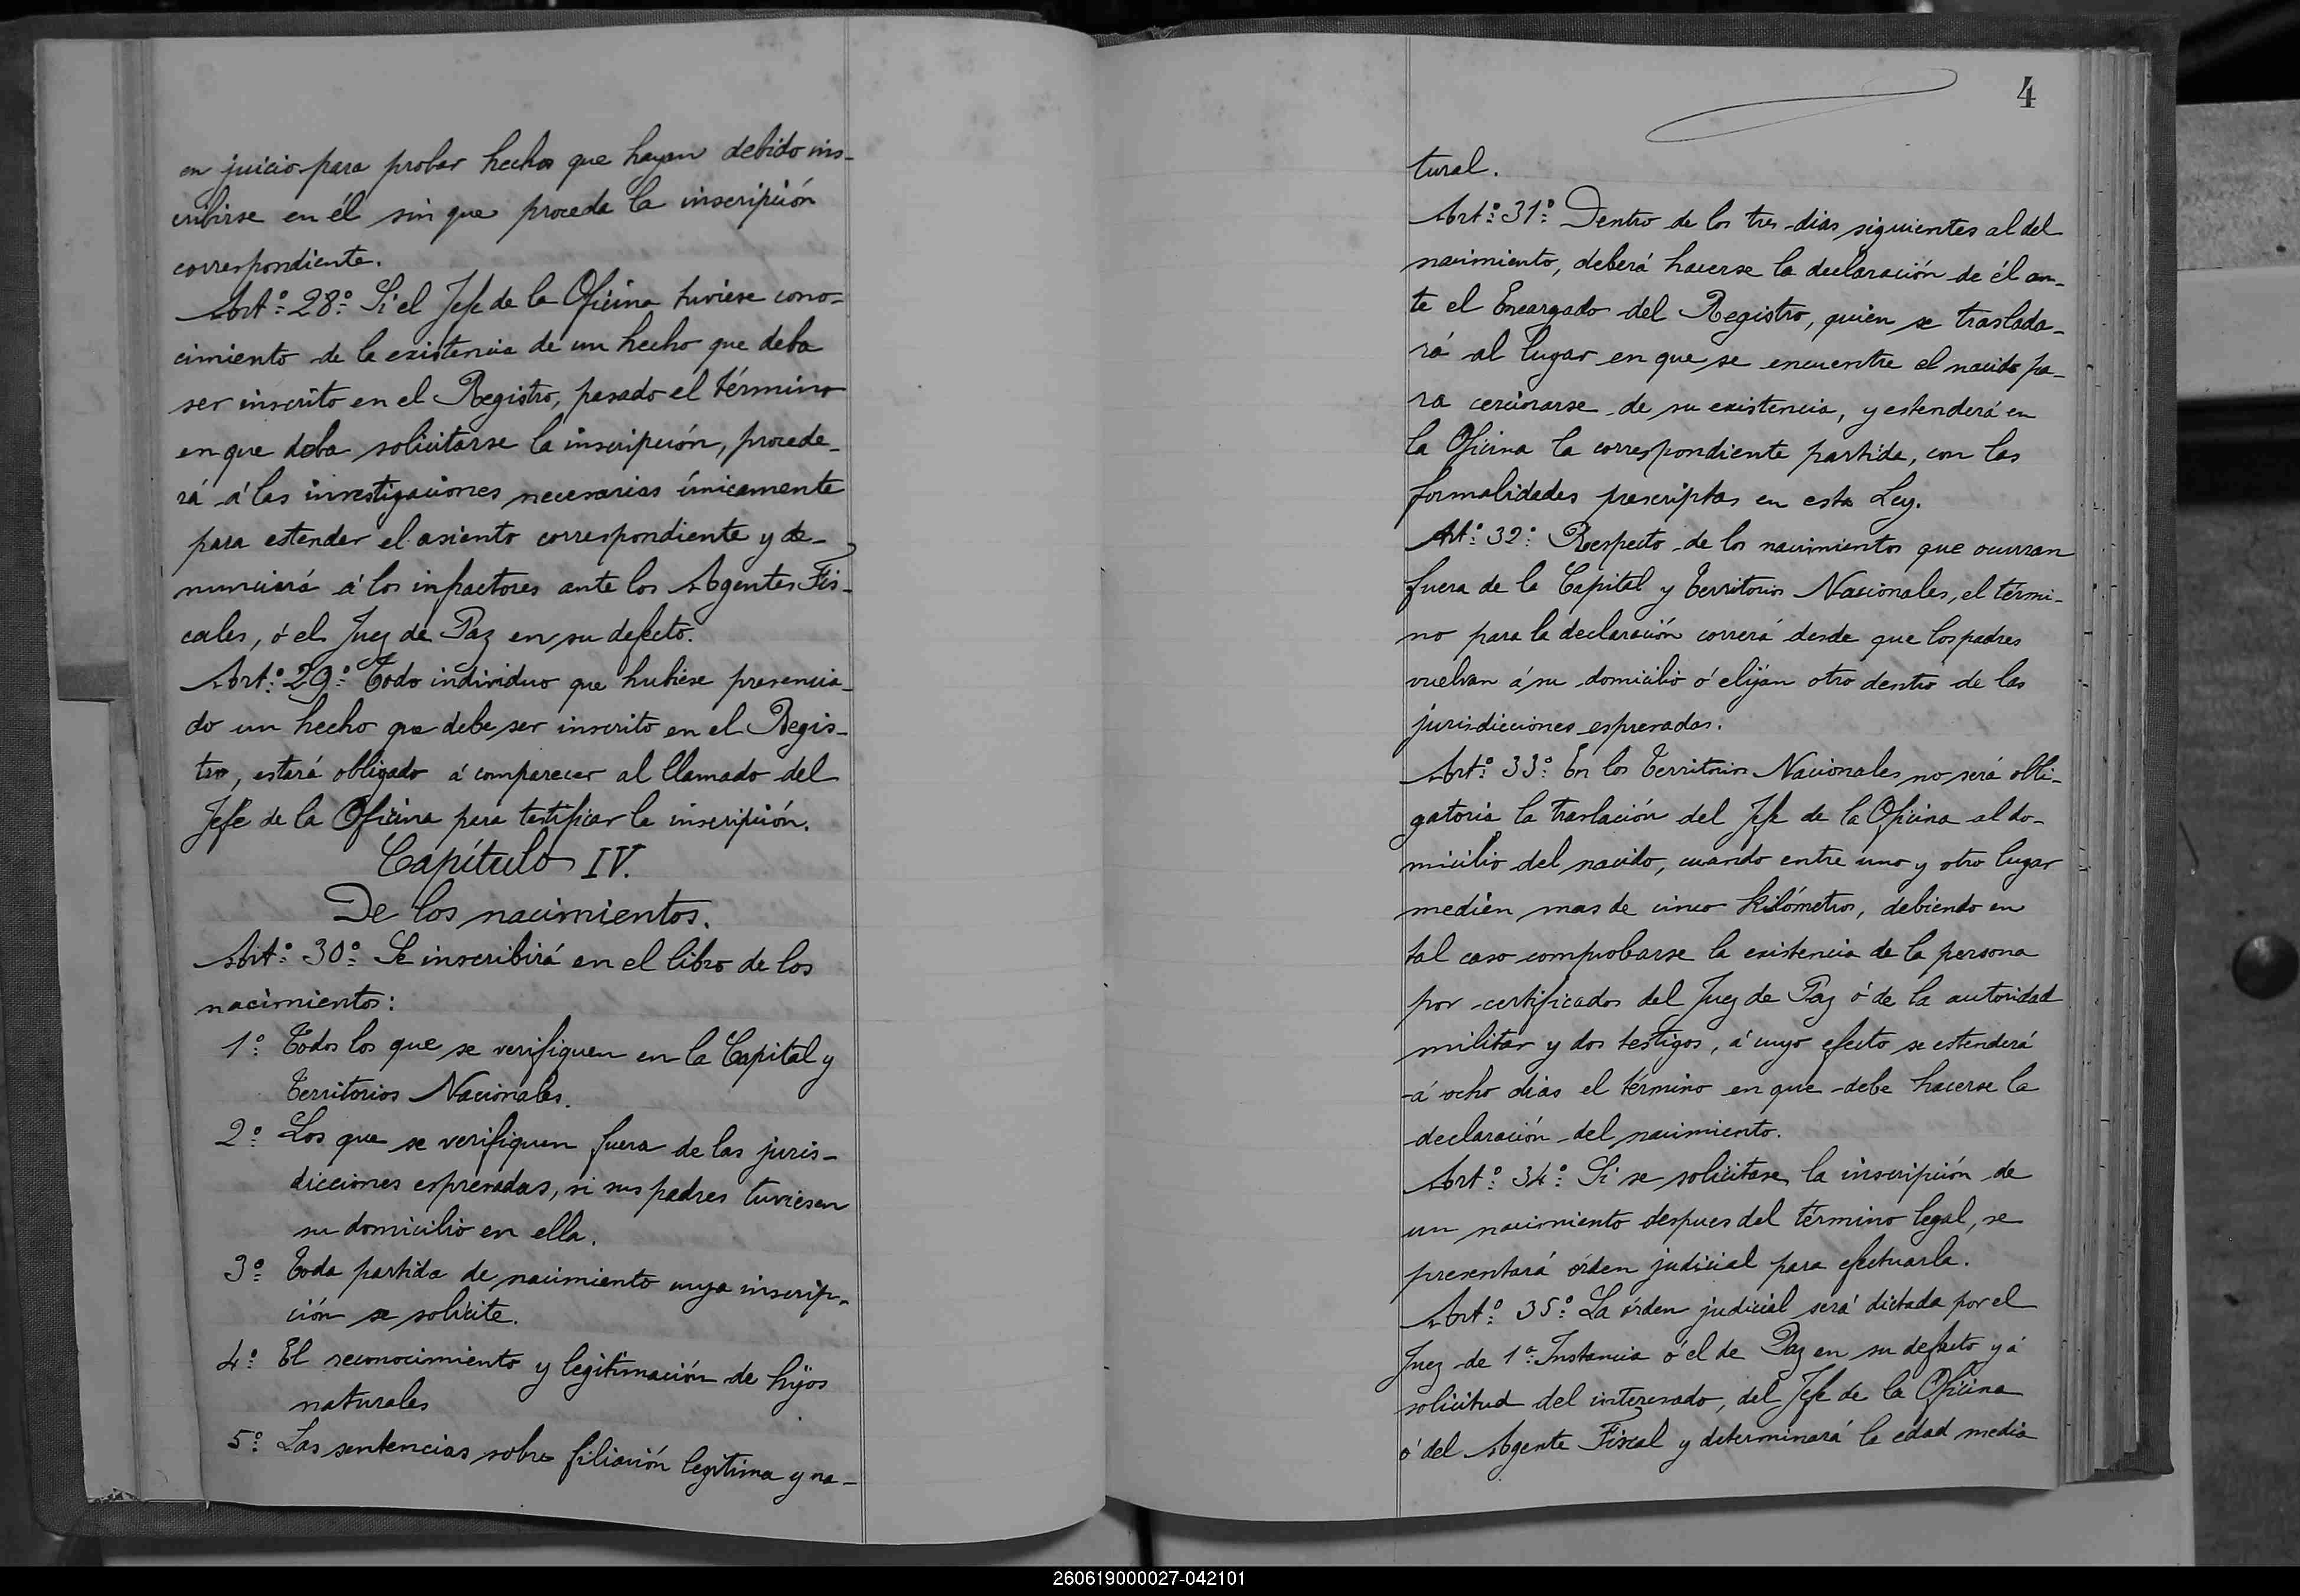 en juicio para probar hechos que hayan debido ins-
cribirse en él sin que proceda la inscripción
correspondiente.
Art.º 28º Si el Jefe de la Oficina tuviese cono-
cimiento de la existencia de un hecho que deba
ser inscrito en el Registro, pasado el término
en que deba solicitarse la inscripción, procede-
rá á las investigaciones necesarias únicamente
para estender el asiento correspondiente y de-
nunciará á los infractores ante los Agentes Fis-
cales, ó el Juez de Paz en su defecto.
Art.º 29º Todo individuo que hubiese presencia-
do un hecho que debe ser inscrito en el Regis-
tro, estará obligado á comparecer al llamado del
Jefe de la Oficina para testificar la inscripción.
Capítulo IV.
De los nacimientos.
Art.º 30º Se inscribirá en el libro de los
nacimientos:
1º Todos los que se verifiquen en la Capital y
Territorios Nacionales.
2º Los que se verifiquen fuera de las juris-
dicciones espresadas, si sus padres tuviesen
su domicilio en ella.
3º Toda partida de nacimiento cuya inscrip-
ción se solicite.
4º El reconocimiento y legitimación de hijos
naturales
5º Las sentencias sobre filiación legítima y na-
4
tural.
Art.º 31º Dentro de los tres dias siguientes al del
nacimiento, deberá hacerse la declaración de él an-
te el Encargado del Registro, quien se traslada-
rá al lugar en que se encuentre el nacido pa-
ra cerciorarse de su existencia, y estenderá en
la Oficina la correspondiente partida, con las
formalidades prescriptas en esta Ley.
Art.º 32º Respecto de los nacimientos que ocurran
fuera de la Capital y Territorios Nacionales, el térmi-
no para la declaración correrá desde que los padres
vuelvan á su domicilio ó elijan otro dentro de las
jurisdicciones espresadas.
Art.º 33º En los Territorios Nacionales no será obli-
gatoria la traslación del Jefe de la Oficina al do-
micilio del nacido, cuando entre uno y otro lugar
medien mas de cinco kilómetros, debiendo en
tal caso comprobarse la existencia de la persona
por certificados del Juez de Paz ó de la autoridad
militar y dos testigos, á cuyo efecto se estenderá
á ocho dias el término en que debe hacerse la
declaración del nacimiento.
Art.º 34º Si se solicitase la inscripción de
un nacimiento despues del término legal, se
presentará órden judicial para efectuarla.
Art.º 35º La órden judicial será dictada por el
Juez de 1ª Instancia ó el de Paz en su defecto y á
solicitud del interesado, del Jefe de la Oficina
ó del Agente Fiscal y determinará la edad media
260619000027-042101